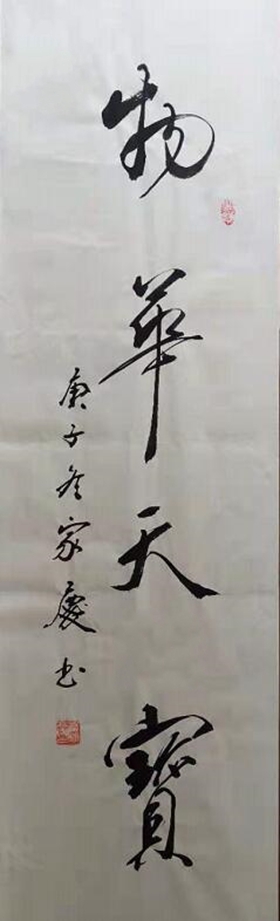 物華天寶
庚子冬家慶书